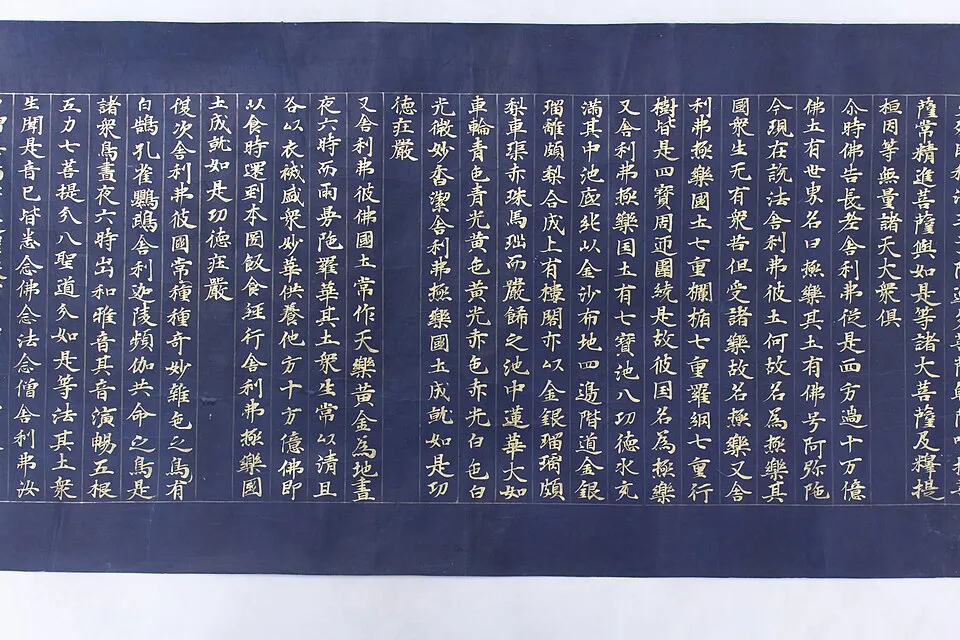 薩常精進菩薩與如是等諸大菩薩及釋提
桓因等無量諸天大衆俱
尒時佛告長老舎利弗従是西方過十万億
佛土有世界名曰極樂其土有佛号阿弥陁
今現在説法舎利弗彼土何故名為極樂其
國衆生无有衆苦但受諸樂故名極樂又舎
利弗極樂國土七重欄楯七重羅網七重行
樹皆是四寶周迊圍繞是故彼国名為極樂
又舎利弗極樂国土有七寶池八功徳水充
滿其中池底純以金沙布地四邊階道金銀
瑠離頗梨合成上有樓閣亦以金銀瑠璃頗
梨車渠赤珠馬瑙而嚴飾之池中蓮華大如
車輪青色青光黄色黄光赤色赤光白色白
光微妙香潔舎利弗極樂國土成就如是功
徳莊嚴
又舎利弗彼佛國土常作天樂黄金為地晝
夜六時而雨曼陁羅華其土衆生常以清旦
各以衣裓盛衆妙華供養他方十方億佛即
以食時還到本国飯食經行舎利弗極樂國
土成就如是功徳莊嚴
復次舎利弗彼國常種種奇妙雜色之鳥有
白鵠孔雀鸚鵡舎利迦陵頻伽共命之鳥是
諸衆鳥晝夜六時出和雅音其音演暢五根
五力七菩提分八聖道分如是等法其土衆
生聞是音已皆悉念佛念法念僧舎利弗汝